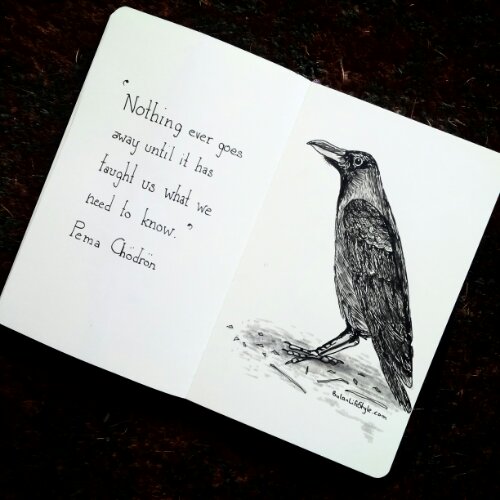 "Nothing ever goes
away until it has
taught us what we
need to know."
Pema Chödrön
BulanLifeStyle.com